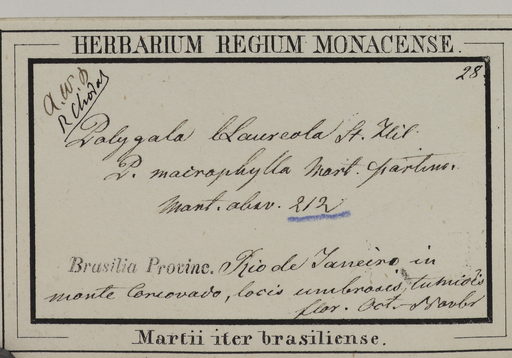 HERBARIUM REGIUM MONACENSE.
28.
R Chodat
Polygala Laureola St. Hil.
P. macrophylla Mart. partim.
Mart. obsv. 212
Brasilia Provinc. Rio de Janeiro in
monte Corcovado, locis umbrosis, tumidis
flor. Oct.-Novbr
Martii iter brasiliense.